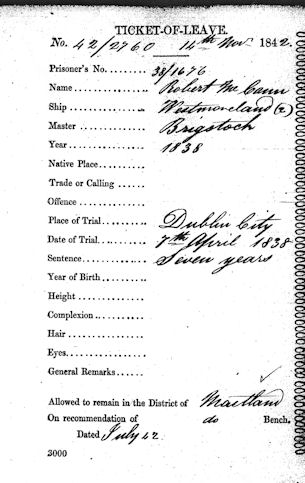 TICKET-OF-LEAVE.
No. 42/2760 14th Novr 1842.
Prisoner's No......... 38/1676
Name.................. Robert Mc Cann
Ship .................. Westmoreland (2)
Master ............... Brigstock
Year .................. 1838
Native Place...........
Trade or Calling ......
Offence ...............
Place of Trial.......... Dublin City
Date of Trial.......... 7th April 1838
Sentence............... Seven years
Year of Birth..........
Height ...............
Complexion............
Hair ..................
Eyes..................
General Remarks......
Allowed to remain in the District of Maitland
On recommendation of do Bench.
Dated July 42
3000